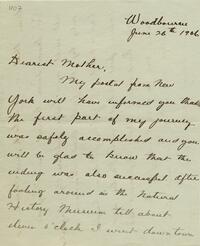 1107
Woodbourne
June 26th 1906
Dearest Mother,
My postal from New
York will have informed you that
the first part of my journey
was safely accomplished and you
will be glad to know that the
ending was also successful. After
fooling around in the Natural
History Museum till about
eleven o'clock I went downtown